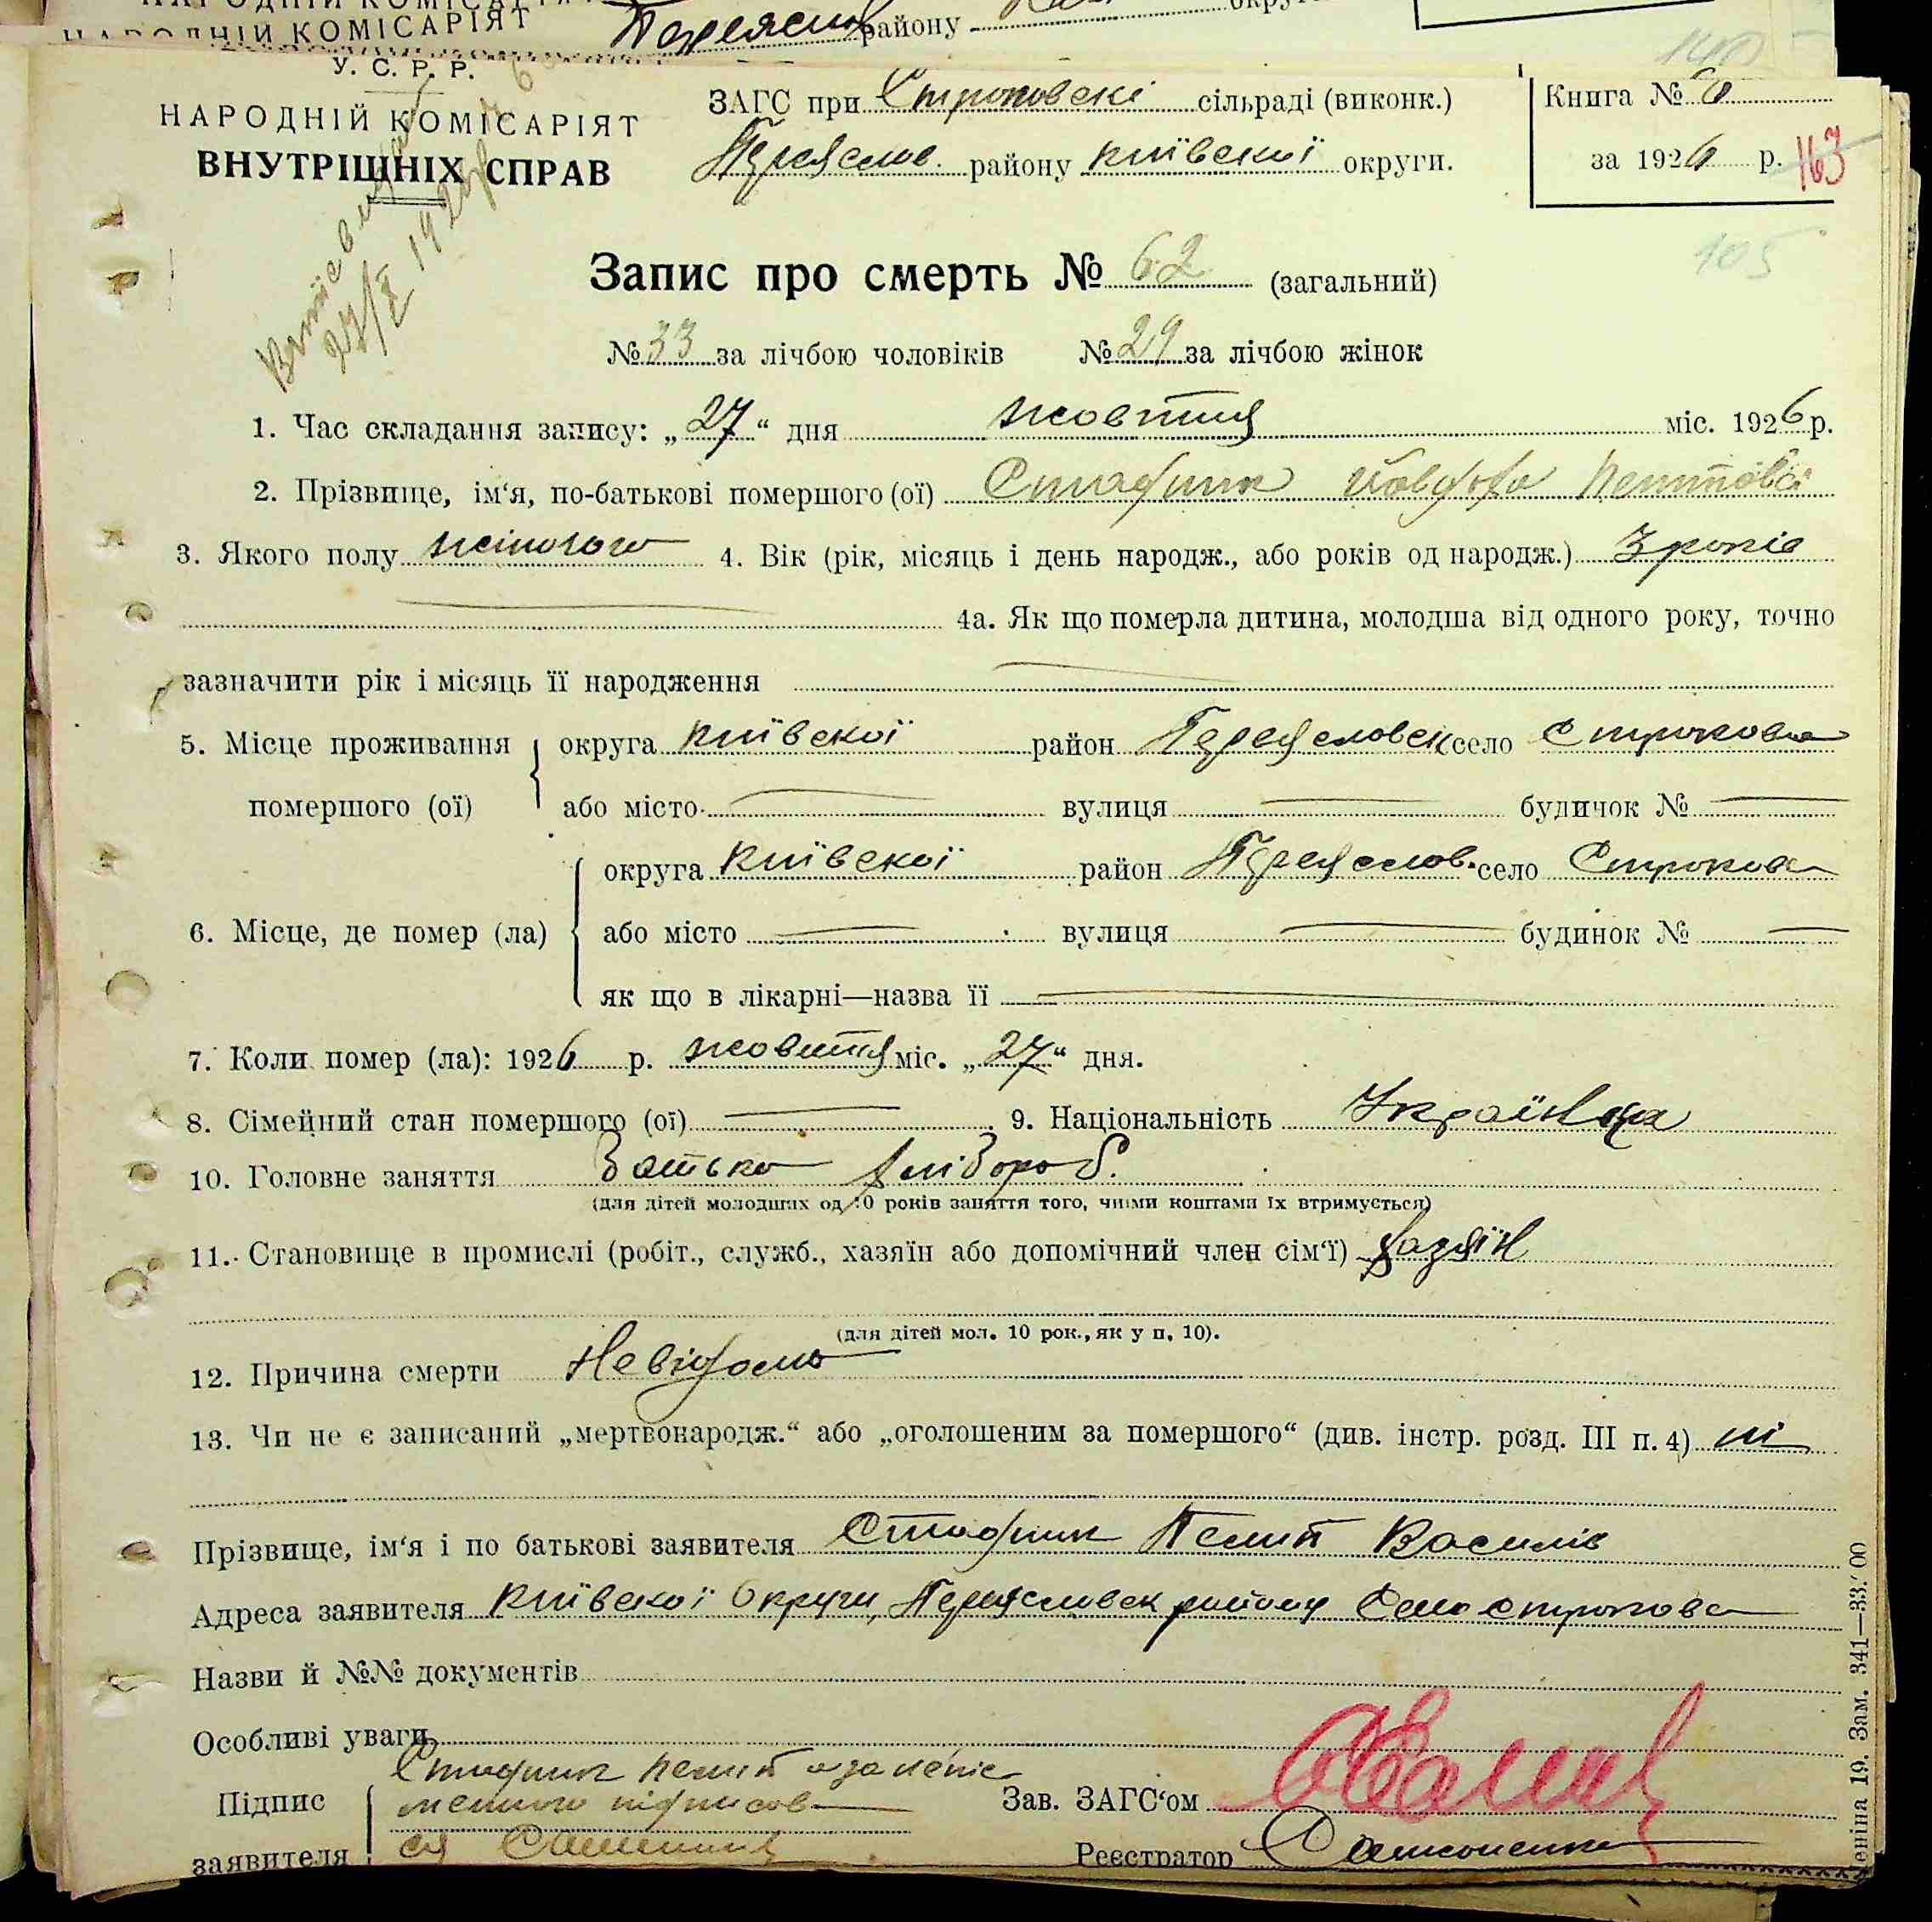 НАРОДНІЙ КОМІСАРІЯТ
району
У. С. Р. Р.
НАРОДНІЙ КОМІСАРІЯТ
ВНУТРІШНІХ СПРАВ
ЗАГС при Строковскі сільраді (виконк.)
Переясло. району Київскої округи.
Книга № 6
за 1926 р.
163
140
105
27/X 1926
Запис про смерть № 62 (загальний)
№ 33 за лічбою чоловіків № 29 за лічбою жінок
1. Час складання запису: „27“ дня жовтня міс. 1926 р.
2. Прізвище, ім‘я, по-батькові помершого (ої) Стадник
3. Якого полу жіночого 4. Вік (рік, місяць і день народж., або років од народж.) 3 років
4а. Як що померла дитина, молодша від одного року, точно
зазначити рік і місяць її народження
5. Місце проживання помершого (ої) округа Київскої район Переясловск село Строкова
або місто вулиця будинок №
6. Місце, де помер (ла) округа Київскої район Переяслов. село Строкова
або місто вулиця будинок №
як що в лікарні—назва її
7. Коли помер (ла): 1926 р. жовтня міс. „27“ дня.
8. Сімейний стан помершого (ої) 9. Національність Українка
10. Головне заняття Батько хлібороб.
(для дітей молодших од 10 років заняття того, чиїми коштами їх втримується)
11. Становище в промислі (робіт., служб., хазяїн або допомічний член сім‘ї) хазяїн
(для дітей мол. 10 рок., як у п. 10).
12. Причина смерти Невідомо
13. Чи не є записаний „мертвонародж.“ або „оголошеним за помершого“ (див. інстр. розд. III п. 4) ні
Прізвище, ім‘я і по батькові заявителя Стадник Василів
Адреса заявителя Київскої Округи, Переясловск району Село Строкова
Назви й №№ документів
Особливі уваги
Підпис заявителя Стадник
Зав. ЗАГС‘ом
Реєстратор
Леніна 19. Зам. 341—33.000